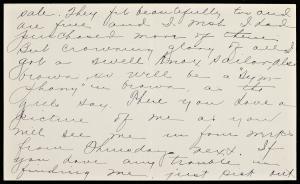 sale. They fit beautifully too and
are fine and I wish I had
purchased more of them
But crowning glory of all I
got a swell Knox Sailor, also
brown, so will be a "Sym-
phony" in brown, as the
girls say. Here you have a
picture of me as you
will see me in four
from Thursday next. If
you have any trouble in
finding me, just sick out